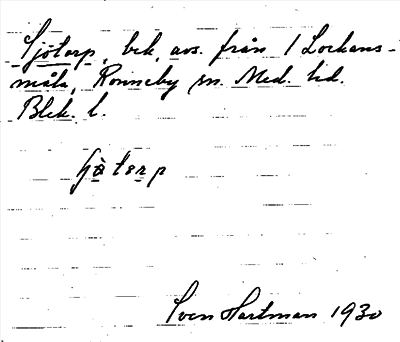 Sjötorp, bek, avs. från 1 Lockans-
måla, Ronneby sn. Med. hd.
Blek. l.
Sven Hartman 1930